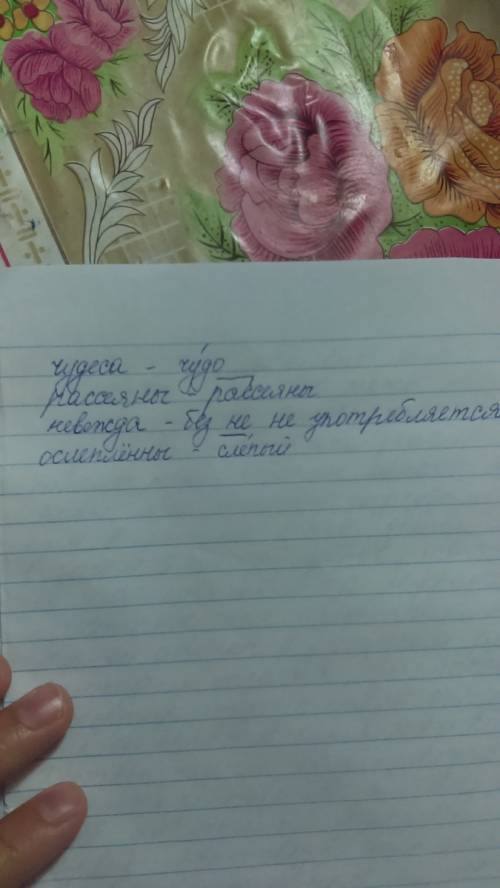 чудеса - чу́до
рассеяны - рассеяны
невежда - без не не употребляется
ослеплённы - сле́пый